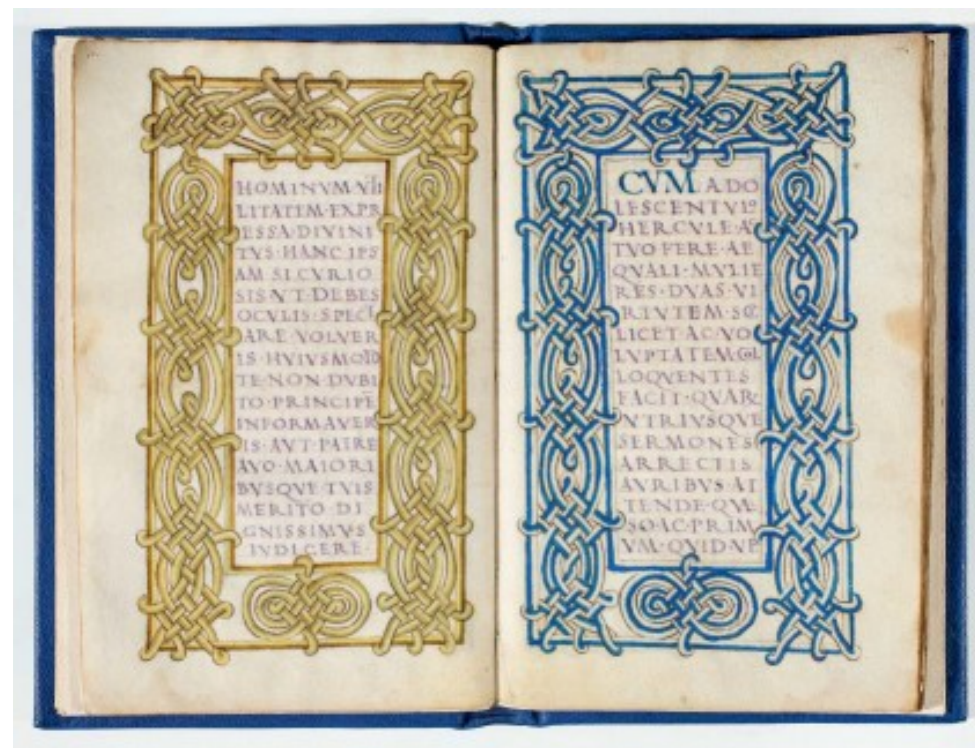 HOMINVM·VTI
LITATEM·EXPR
ESSA·DIVINI
TVS·HANC·IPS
AM·SI·CVRIO
SIS·VT·DEBES
OCVLIS·SPECT
ARE·VOLVER
IS·HVIVSMODI
TE·NON·DVBI
TO·PRINCIPĒ
INFORMAVER
IS·AVT·PATRE
AVO·MAIORI
BVSQVE·TVIS
MERITO·DI
GNISSIMVS
IVDICERE·
CVM ADO
LESCENTVLO
HERCVLE·
TVO·FERE·AE
QVALI·MVLIE
RES·DVAS·VI
RTVTEM·
LICET·AC·VO
LVPTATEM·COL
LOQVENTES
FACIT·QVARE
VTRIVSQVE
SERMONES
ARRECTIS
AVRIBVS·AT
TENDE·QVE
SO·AC·PRIM
VM·QVID·VP